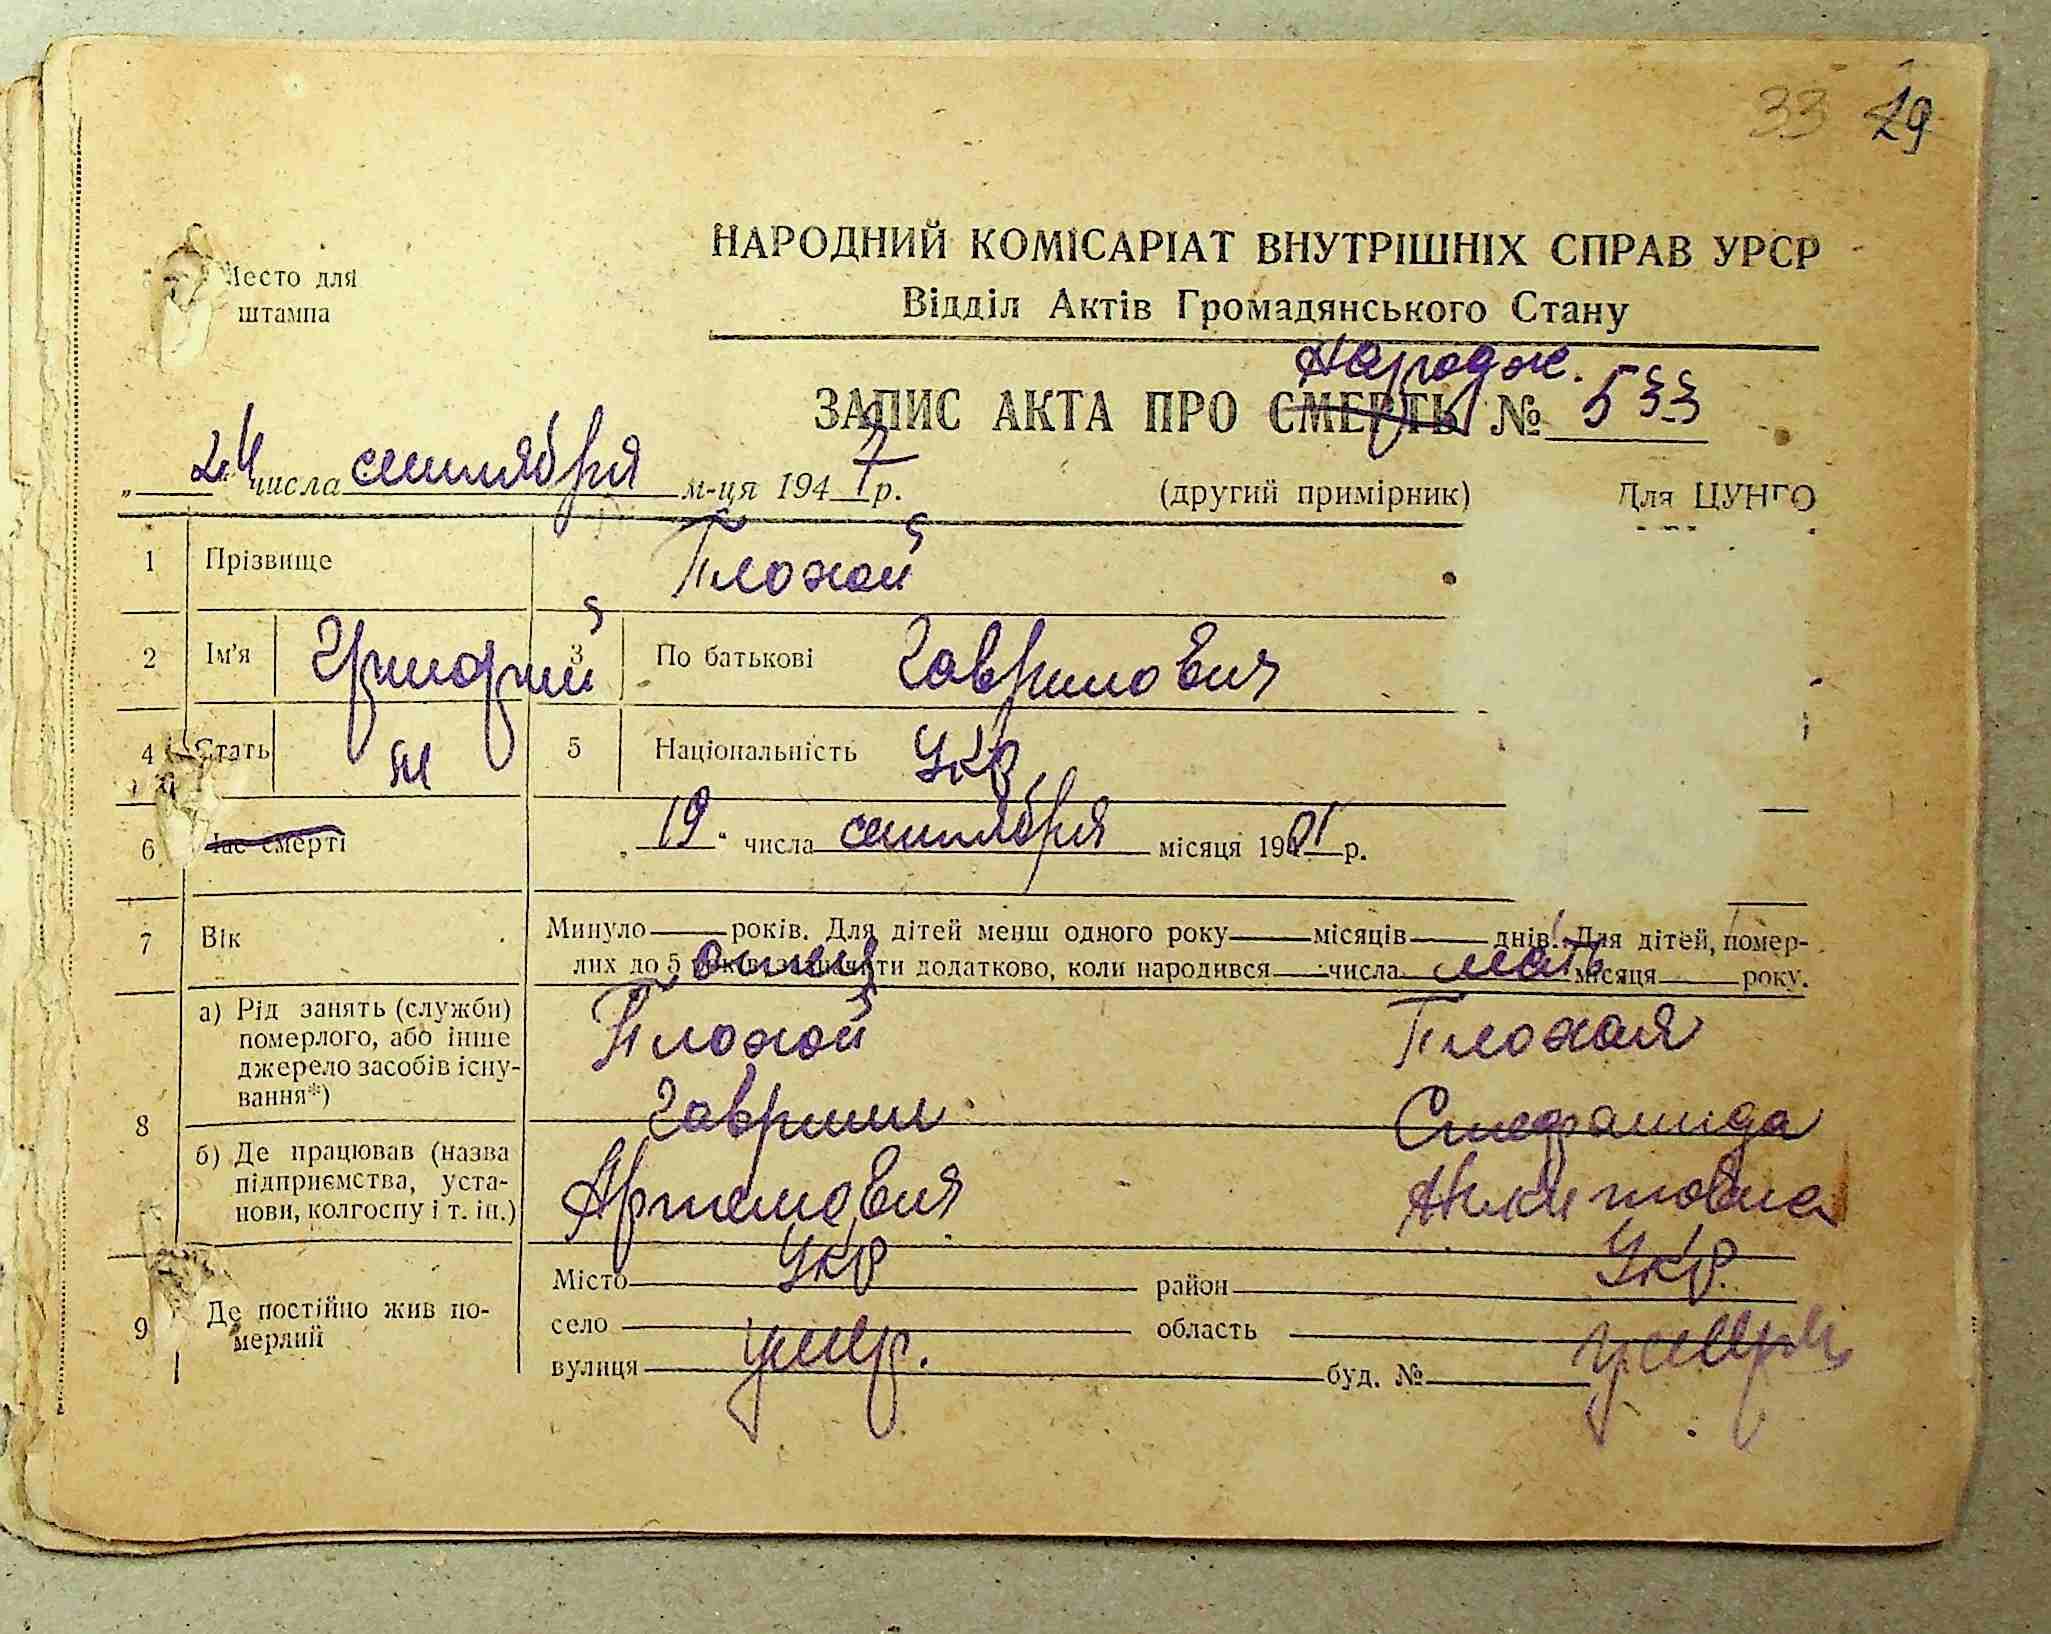 33 29
Место для
штампа
НАРОДНИЙ КОМІСАРІАТ ВНУТРІШНІХ СПРАВ УРСР
Відділ Актів Громадянського Стану
Народж.
ЗАПИС АКТА ПРО СМЕРТЬ № 533
„24" числа сентября м-ця 1947 р. (другий примірник) Для ЦУНГО
1 Прізвище Плохой
2 Ім'я Григорий 3 По батькові Гаврилович
4 Стать М 5 Національність Укр.
6 Час смерті „19" числа сентября місяця 1901 р.
7 Вік Минуло — років. Для дітей менш одного року — місяців — днів. Для дітей, помер-
лих до 5 років зазначити додатково, коли народився — числа — місяця — року.
отец мать
8 а) Рід занять (служби) померлого, або інше джерело засобів існу-вання*) Плохой Плохая
Гавриил Стефанида
б) Де працював (назва підприємства, уста-нови, колгоспу і т. ін.) Артемович Никитовна
Укр Укр.
9 Де постійно жив по-мерлий Місто район
село область
умер.
вулиця буд. №